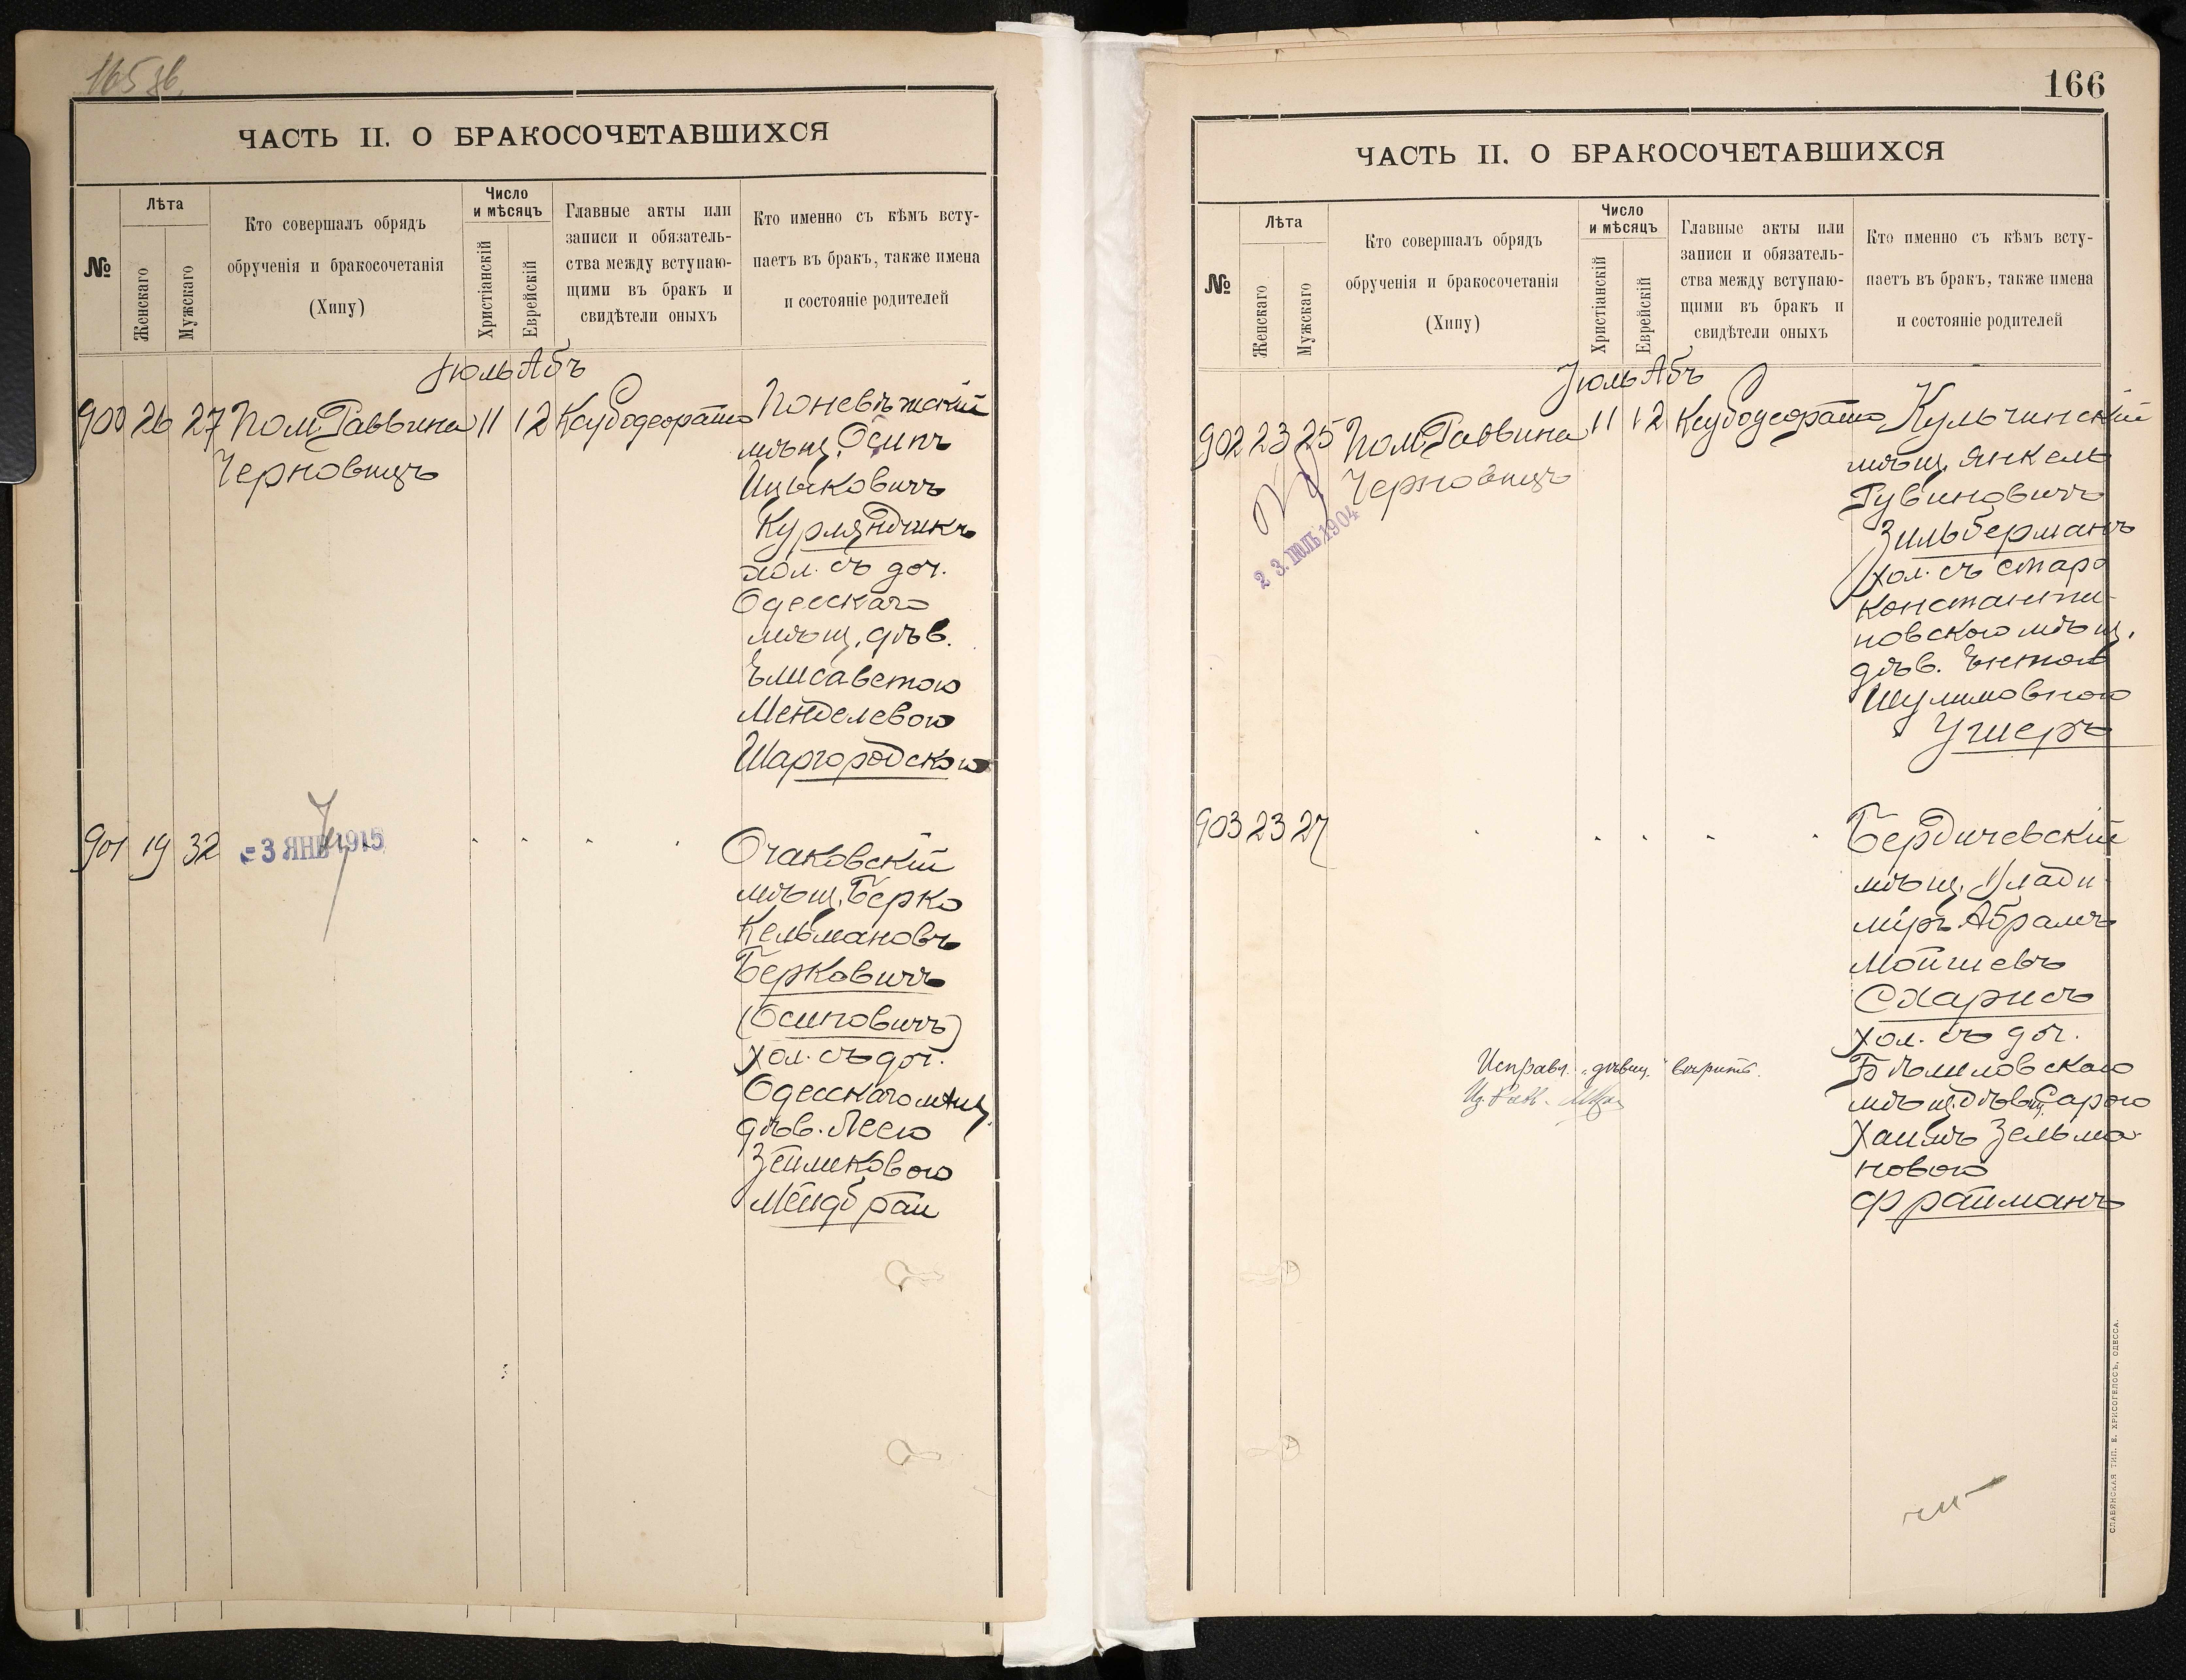 165 об.
ЧАСТЬ II. О БРАКОСОЧЕТАВШИХСЯ
№
Лѣта
Женскаго
Мужскаго
Кто совершалъ обрядъ
обрученія и бракосочетанія
(Хипу)
Число
и мѣсяцъ
Христіанскій
Еврейскій
Главные акты или
записи и обязатель-
ства между вступаю-
щими въ бракъ и
свидѣтели оныхъ
Кто именно съ кѣмъ всту-
паетъ въ бракъ, также имена
и состояніе родителей
Іюль Абъ
900 26 27 Пом. Раввина 11 12
Черновицъ
Поневѣжский
мѣщ. Осипъ
Ицыковичъ
Курляндчикъ
хол. съ доч.
Одесскаго
мѣщ. дѣв.
Елисаветою
Менделевою
Шаргородскою
901 19 32
-3 ЯНВ 1915
Очаковскій
мѣщ. Берко
Кельмановъ
Берковичъ
(Осиповичъ)
хол. съ доч.
Одесскаго мѣщ.
дѣв. Леею
Зейликовою
166
ЧАСТЬ II. О БРАКОСОЧЕТАВШИХСЯ
№
Лѣта
Женскаго
Мужскаго
Кто совершалъ обрядъ
обрученія и бракосочетанія
(Хипу)
Число
и мѣсяцъ
Христіанскій
Еврейскій
Главные акты или
записи и обязатель-
ства между вступаю-
щими въ бракъ и
свидѣтели оныхъ
Кто именно съ кѣмъ всту-
паетъ въ бракъ, также имена
и состояніе родителей
Іюль Абъ
902 23 25 Пом. Раввина 11 12
Черновицъ
23. ІЮЛЬ 1904
Кульчинскій
мѣщ. Янкель
Рувиновичъ
Зильберманъ
хол. съ Старо
константи-
новского мѣщ.
дѣв. Ентою
Шулимовною
Ушеръ
903 23 27
Бердичевскій
мѣщ. Влади-
міръ Абрамъ
Мойшевъ
Схарисъ
хол. съ доч.
Бѣлиловскаго
мѣщ. дѣвиц. Сарою
Хаимъ Зельма-
новою
Фрайманъ
Исправл. „дѣвиц." вѣрить.
СЛАВЯНСКАЯ ТИП. Е. ХРИСОГЕЛОСЪ, ОДЕССА.